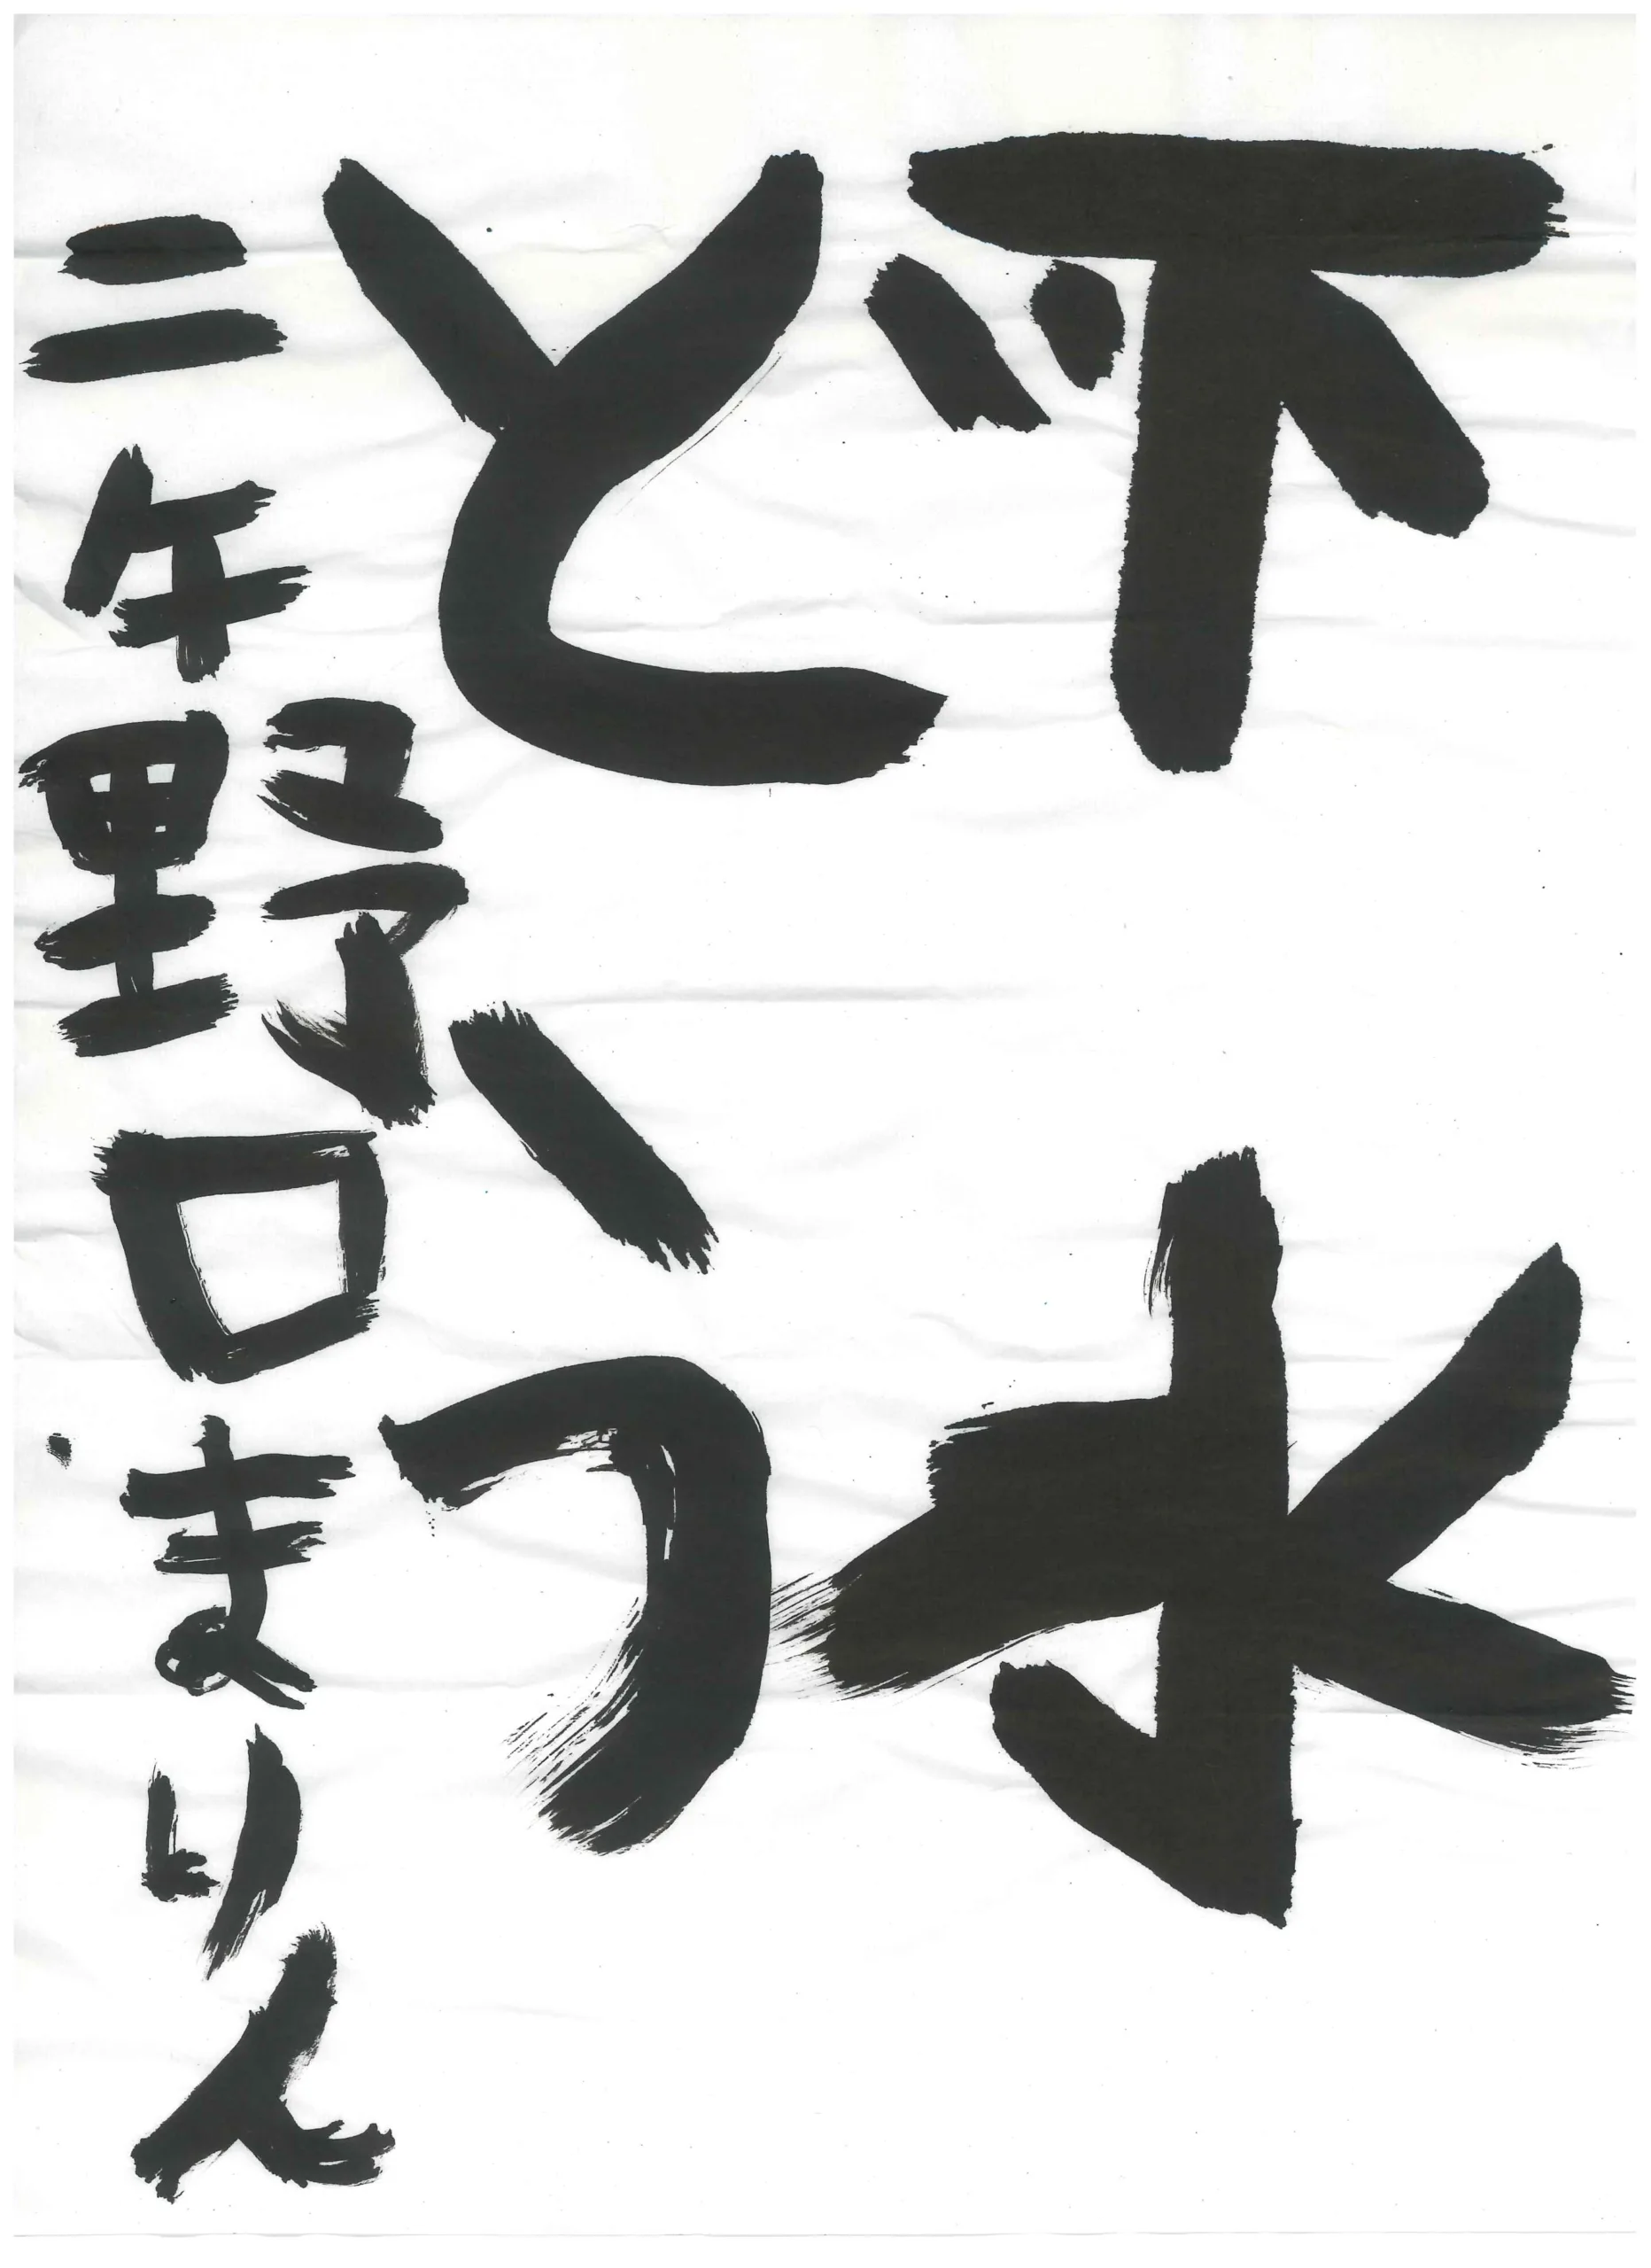 下水
どう
二年野口まりん